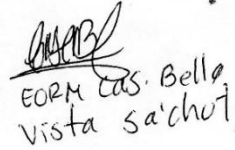 EORM Cas. Bella
Vista sa'chut